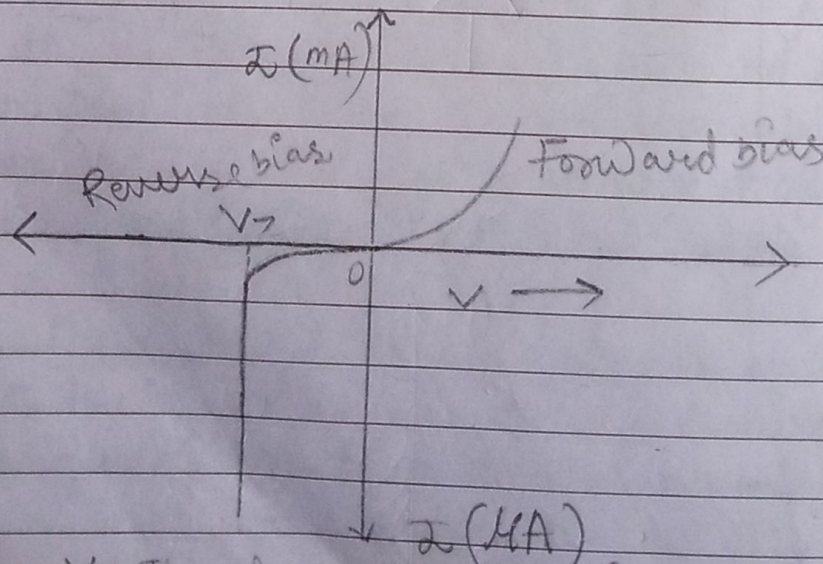 I (mA)
Reverse bias
Forward bias
Vz
O
V
I (μA)